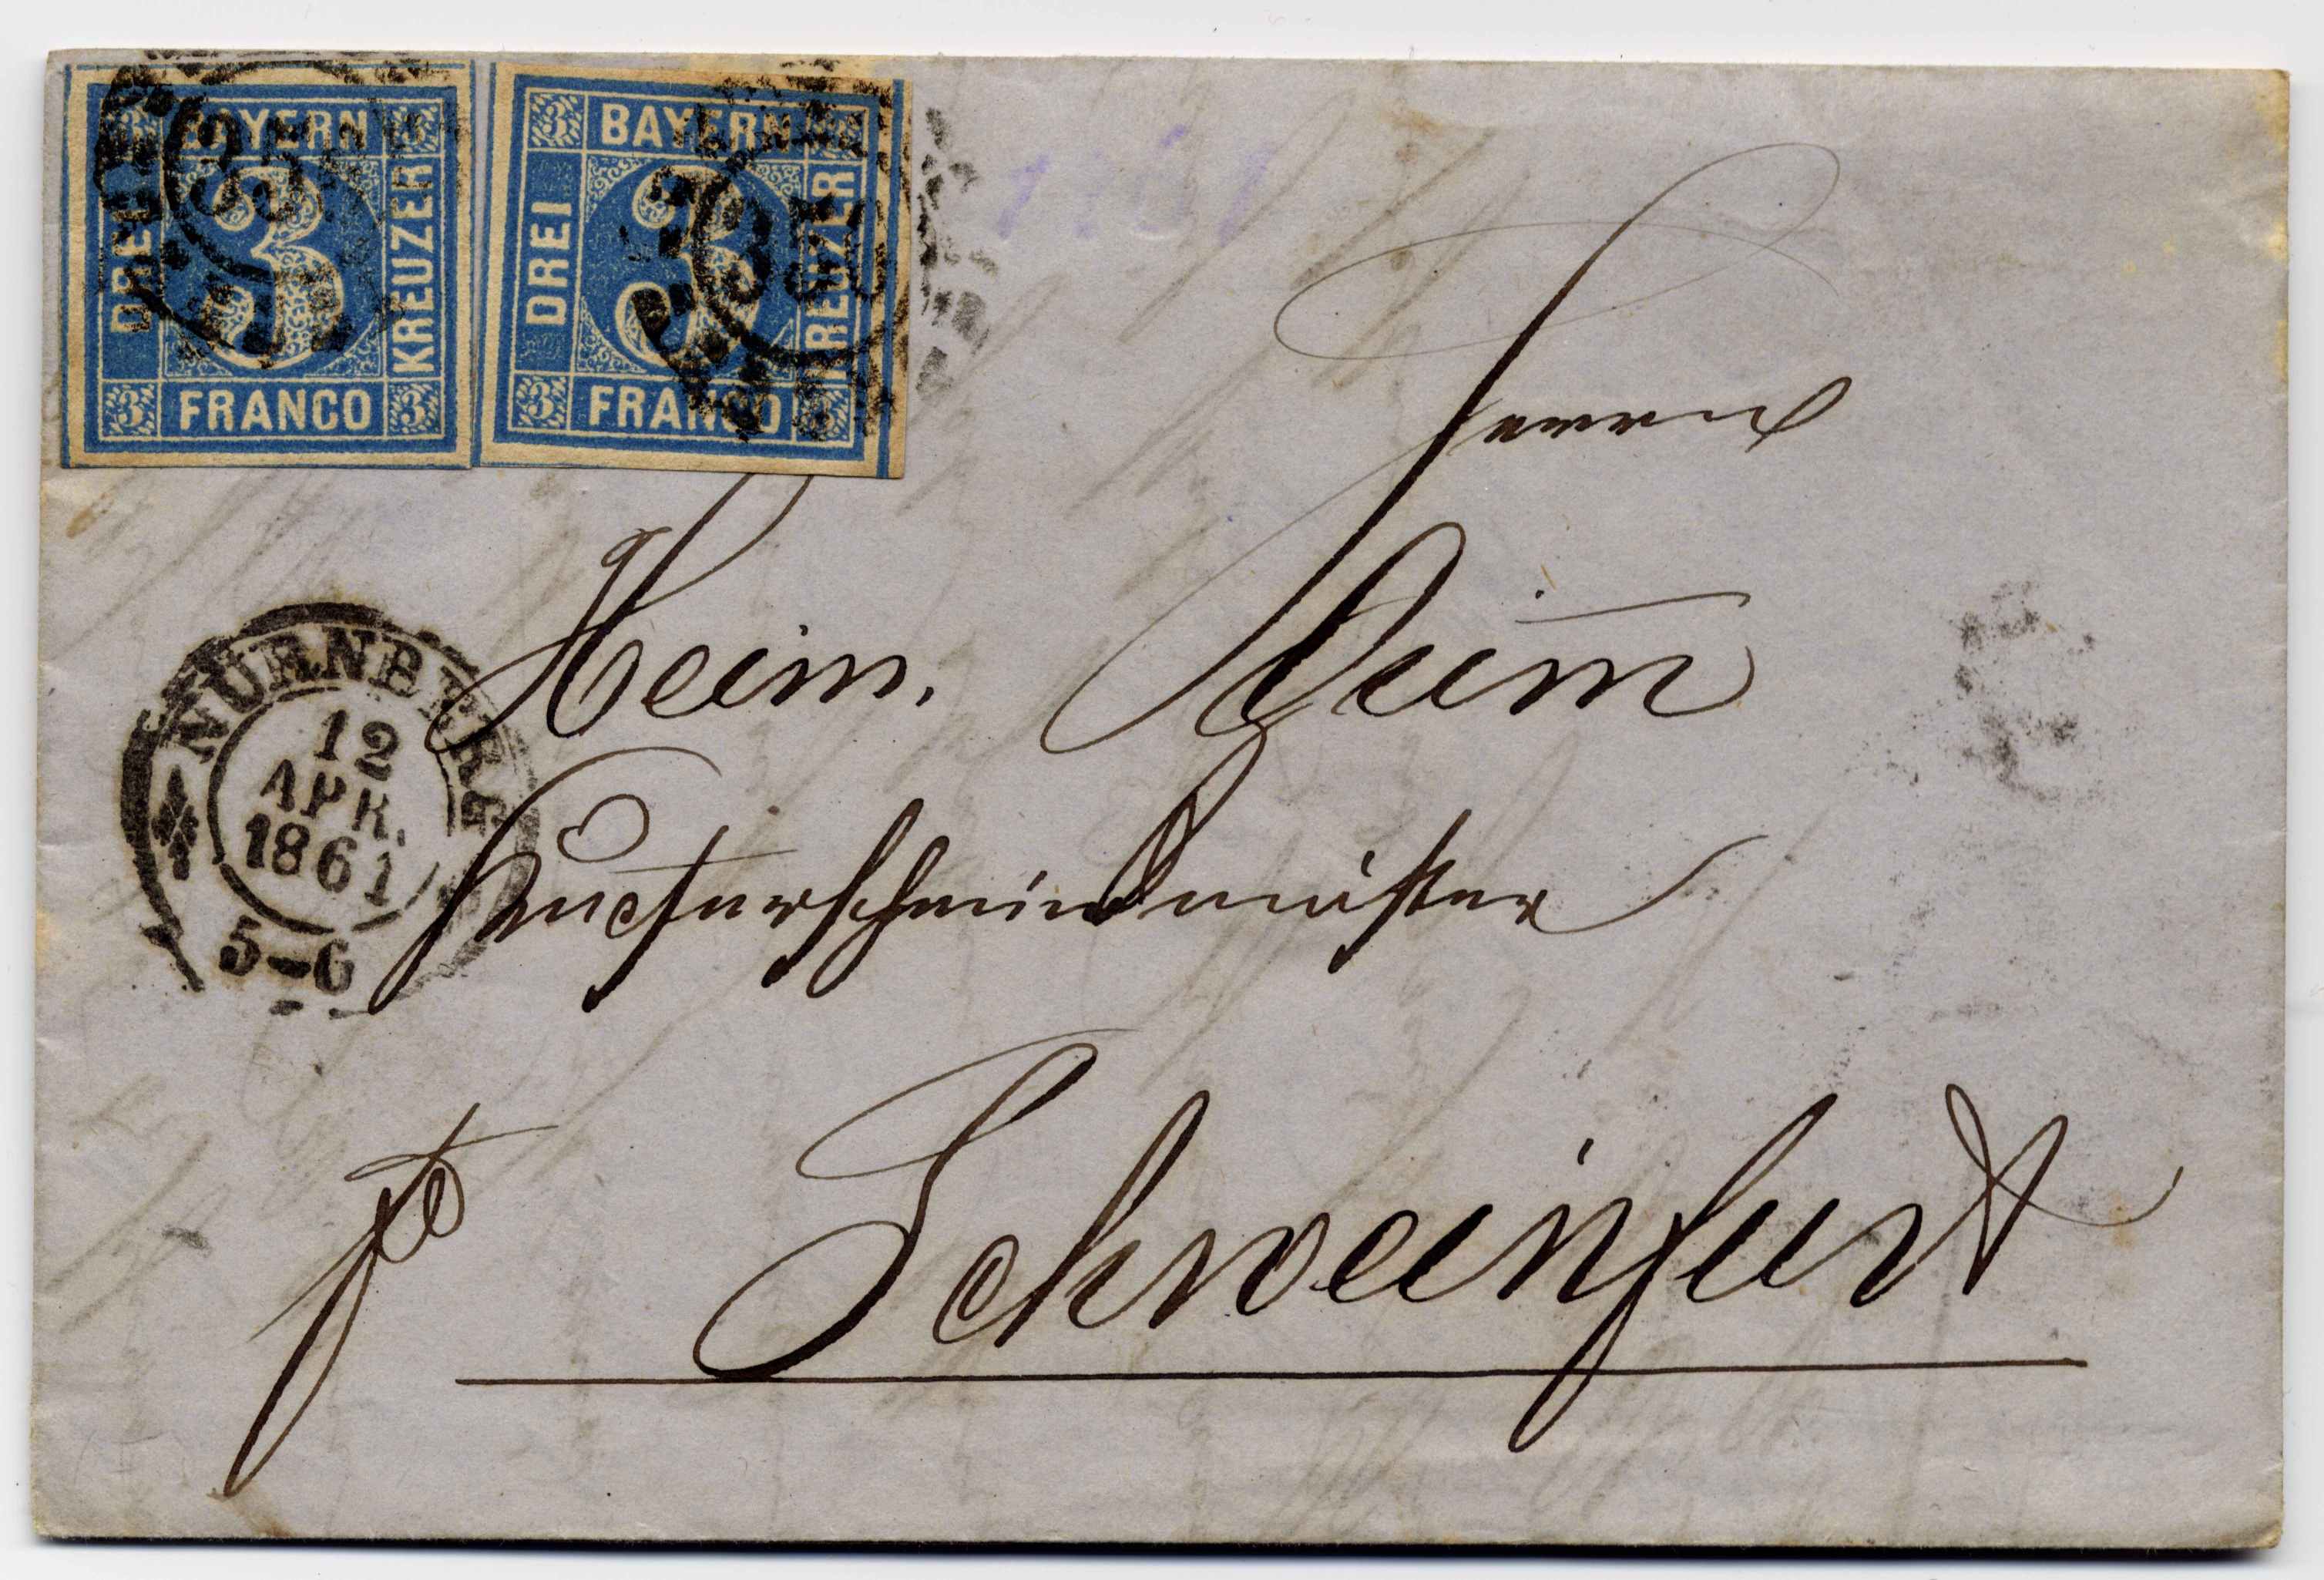 3 BAYERN 3
DREI 3 KREUZER
3 FRANCO 3
3 BAYERN 3
DREI 3 KREUZER
3 FRANCO 3
1861
Herrn
Heinr.
NÜRNBERG
12
APR.
1861
5-6
Schweinfurt